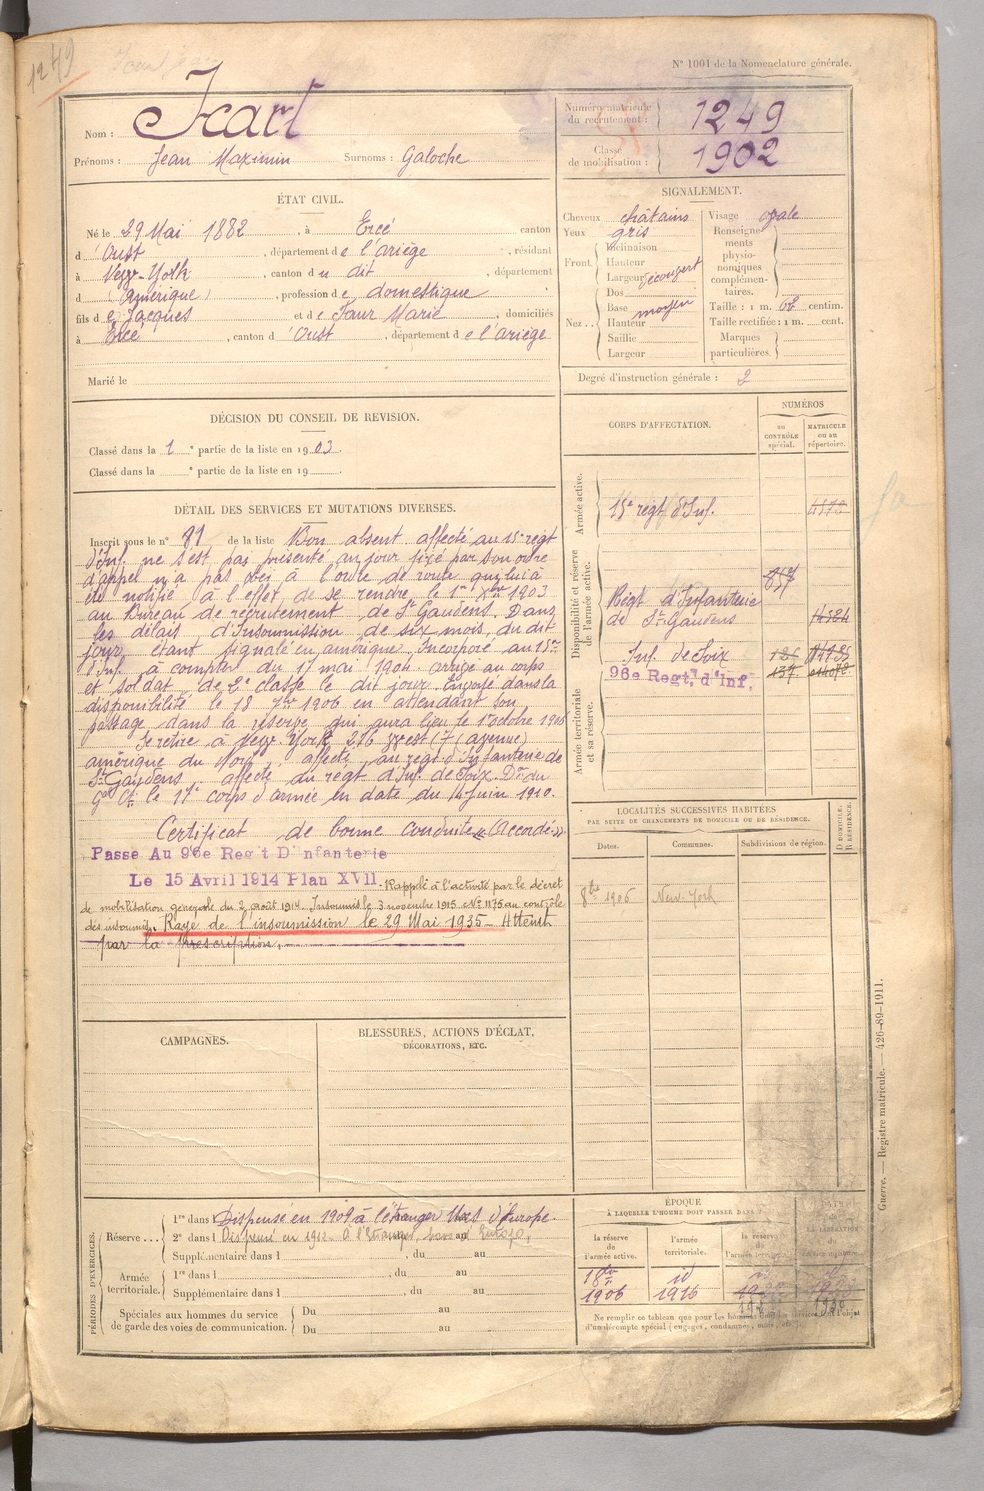 1249
N° 1001 de la Nomenclature générale.
Nom : Icart
Prénoms : Jean Maximin Surnoms : Galoche
Numéro matricule du recrutement : 1249
Classe de mobilisation : 1902
ÉTAT CIVIL.
Né le 29 Mai 1882, à Ercé canton
d'Oust, département de l'ariège, résidant
à New-York, canton du dit, département
d (Amérique), profession de domestique
fils de Jacques et de Faur Marie, domiciliés
à Ercé, canton d'Oust, département de l'ariège
Marié le
SIGNALEMENT.
Cheveux châtains
Yeux gris
Front. Inclinaison
Hauteur
Largeur découvert
Nez. Dos
Base moyen
Hauteur
Saillie
Largeur
Visage ovale
Renseignements physionomiques complémentaires.
Taille : 1 m. 68 centim.
Taille rectifiée : 1 m. cent.
Marques particulières.
Degré d'instruction générale : 2
DÉCISION DU CONSEIL DE REVISION.
Classé dans la 1e partie de la liste en 1903.
Classé dans la e partie de la liste en 19
DÉTAIL DES SERVICES ET MUTATIONS DIVERSES.
Inscrit sous le n° 81 de la liste Bon absent affecté au 15e régt
d'Inf. ne s'est pas présenté au jour fixé par son ordre
d'appel n'a pas obéi à l'ordre de route qui lui a
été notifié à l'effet de se rendre le 1er Xbre 1903
au Bureau de recrutement de St Gaudens. Dans
les délais d'Insoumission de six mois, du dit
jour, étant signalé en amérique. Incorporé au 15e
d'Inf. à compter du 17 mai 1904 arrivé au corps
et soldat de 2e classe le dit jour. Envoyé dans la
disponibilité le 18 7bre 1906 en attendant son
passage dans la réserve qui aura lieu le 1er octobre 1906
Se retire à New York 216 West 17 (avenue)
amérique du Nord, affecté au régt d'Infanterie de
St Gaudens, affecté au régt d'Inf. de Foix. Don du
Gal Ct le 17e corps d'armée en date du 14 Juin 1910.
Certificat de bonne conduite "(Accordé)".
Passé Au 96e Reg't D'Infanterie
Le 15 Avril 1914 Plan XVII. Rappelé à l'activité par le décret
de mobilisation générale du 2 août 1914. Insoumis le 3 novembre 1915 N° 1175 au contrôle
des insoumis. Rayé de l'insoumission le 29 Mai 1935 - Atteint
par la prescription.
CORPS D'AFFECTATION.
NUMÉROS
au CONTRÔLE spécial.
MATRICULE ou au répertoire.
Armée active.
15e régt d'Inf. 4573
Disponibilité et réserve de l'armée active.
Régt d'Infanterie
de St Gaudens
Inf. de Foix
96e Regt. d'Inf.
Armée territoriale et sa réserve.
LOCALITÉS SUCCESSIVES HABITÉES
PAR SUITE DE CHANGEMENTS DE DOMICILE OU DE RÉSIDENCE.
Dates. Communes. Subdivisions de région. D DOMICILE, R RÉSIDENCE.
8bre 1906 New-York
CAMPAGNES.
BLESSURES, ACTIONS D'ÉCLAT, DÉCORATIONS, ETC.
PÉRIODES D'EXERCICES.
Réserve... 1re dans l Dispensé en 1909 à l'étranger hors d'Europe.
2e dans l Dispensé en 1912 à l'Etranger, hors d'Europe,
Supplémentaire dans l , du au
Armée territoriale. 1re dans l , du au
Supplémentaire dans l , du au
Spéciales aux hommes du service de garde des voies de communication. Du au
Du au
ÉPOQUE
À LAQUELLE L'HOMME DOIT PASSER DANS
la réserve de l'armée active. l'armée territoriale. la réserve de l'armée territoriale.
1 8bre 1906 id 1916
Ne remplir ce tableau que pour les hommes dont les services font l'objet
d'un décompte spécial (engagés, condamnés, omis, etc.).
Guerre. — Registre matricule. — 426-89-1911.